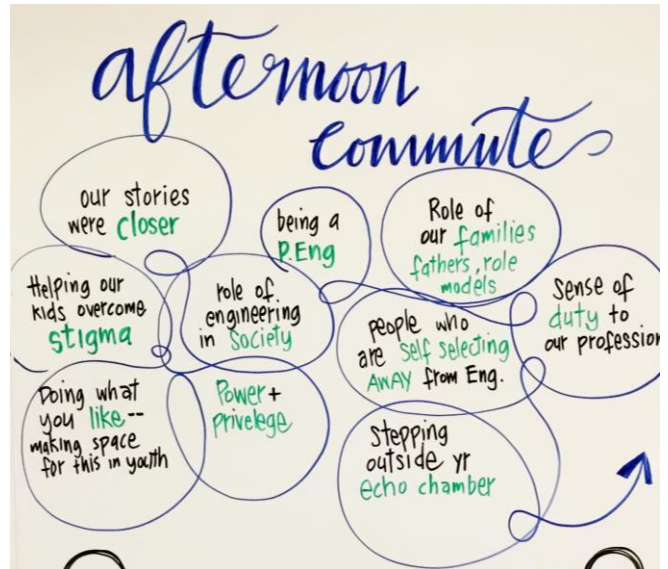 afternoon
commute
our stories
were closer
being a
P.Eng
Role of
our families
fathers, role
models
Helping our
kids overcome
stigma
role of
engineering
in Society
people who
are self selecting
AWAY from Eng.
Sense of
duty to
our profession
Doing what
you like--
making space
for this in youth
Power +
privelege
Stepping
outside yr
echo chamber